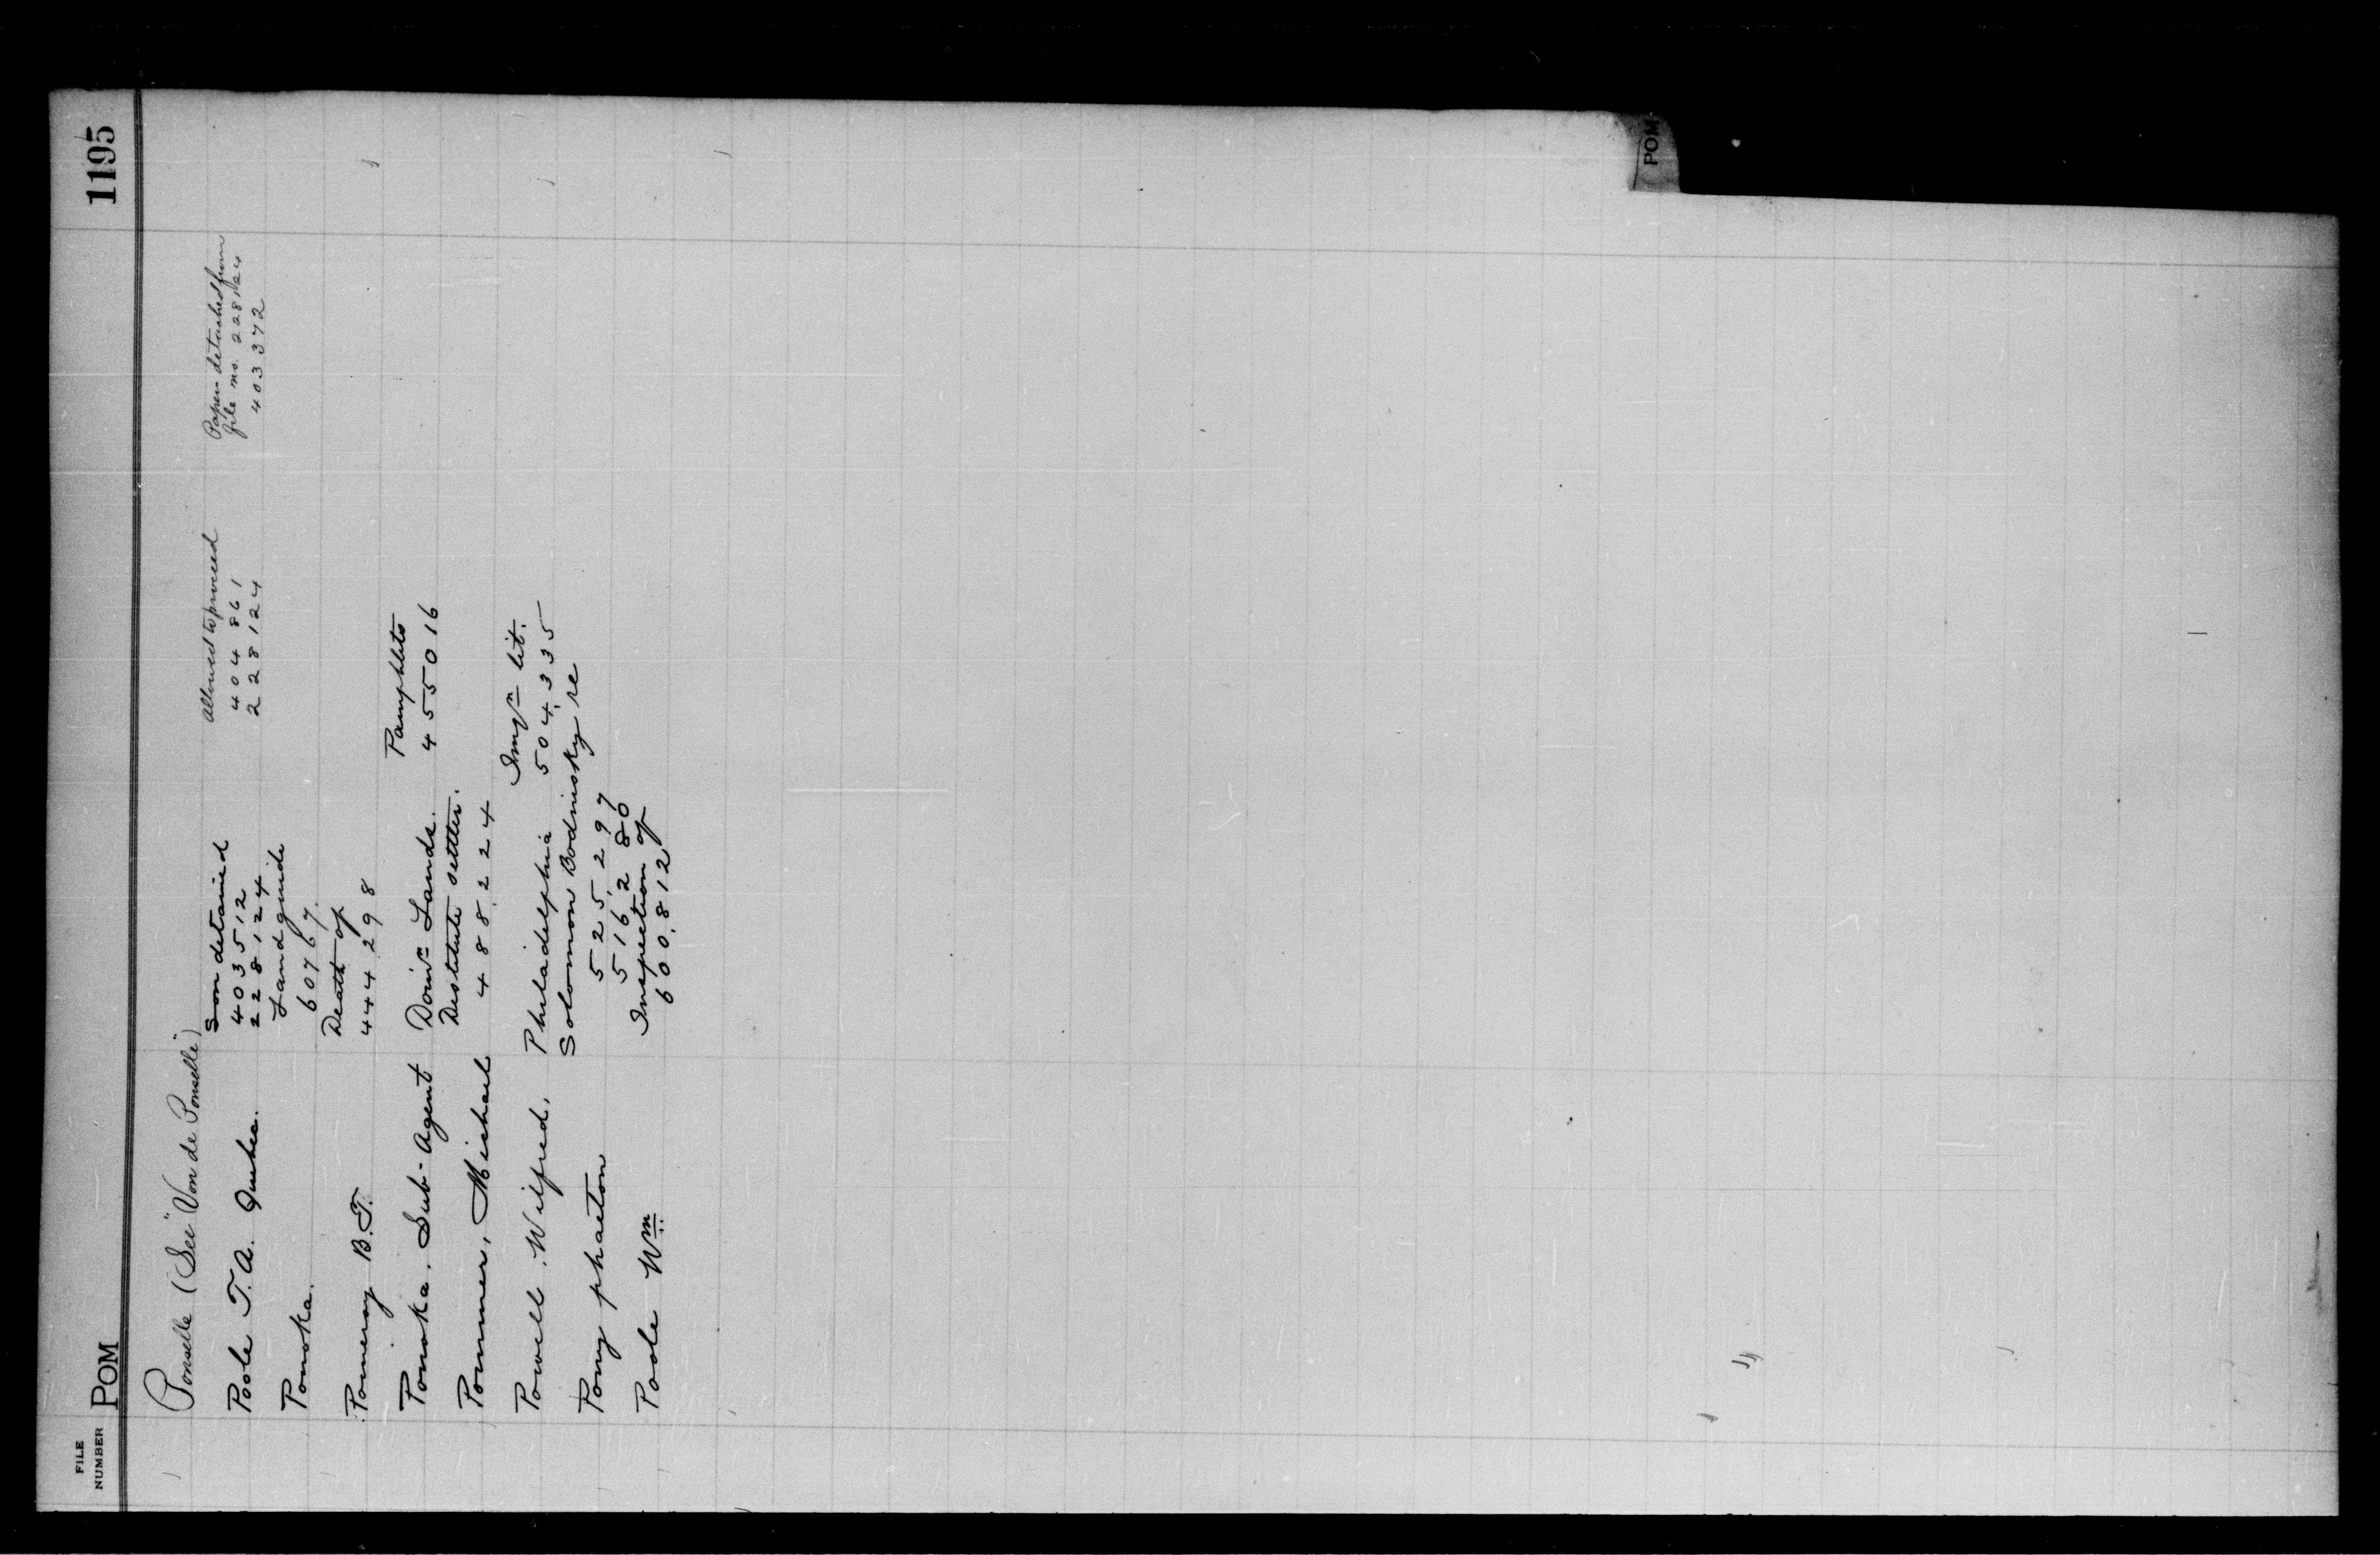 FILE NUMBER
POM
1195
Ponselle (See "Von de Ponselle")
Poole T.A. Quebec.
Son detained
403512
228124
Allowed to proceed
404861
228124
Paper detached from
file no. 228124
403372
Ponoka.
Land guide
60767.
Pomeroy B.T.
Death of
444298
Ponoka. Sub-Agent
Dom'n Lands.
Pamphlets
455016
Pommer, Michael
Destitute settler.
488224
Powell, Wilfred,
Philadelphia
Imm'n lit.
504335
Pony phaeton
Solomon Bodnisky re
525297
516280
Poole Wm
Inspection of
600812
POM